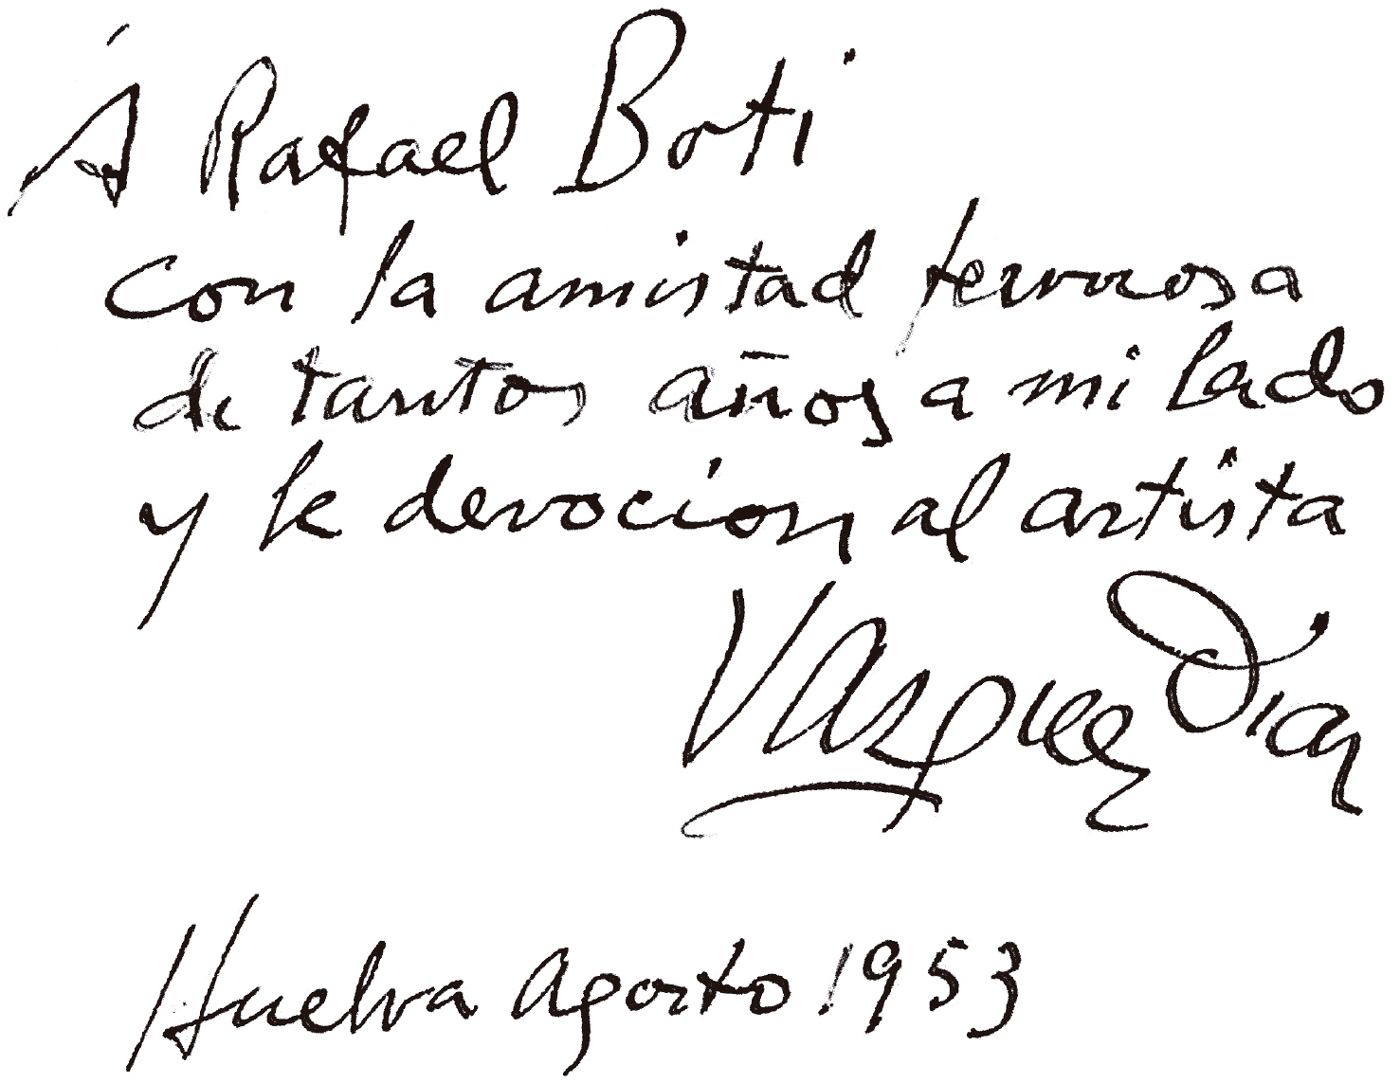 Á Rafael Boti
con la amistad fervorosa
de tantos años a mi lado
y la devocion al artista
Vazquez Diaz
Huelva Agosto 1953